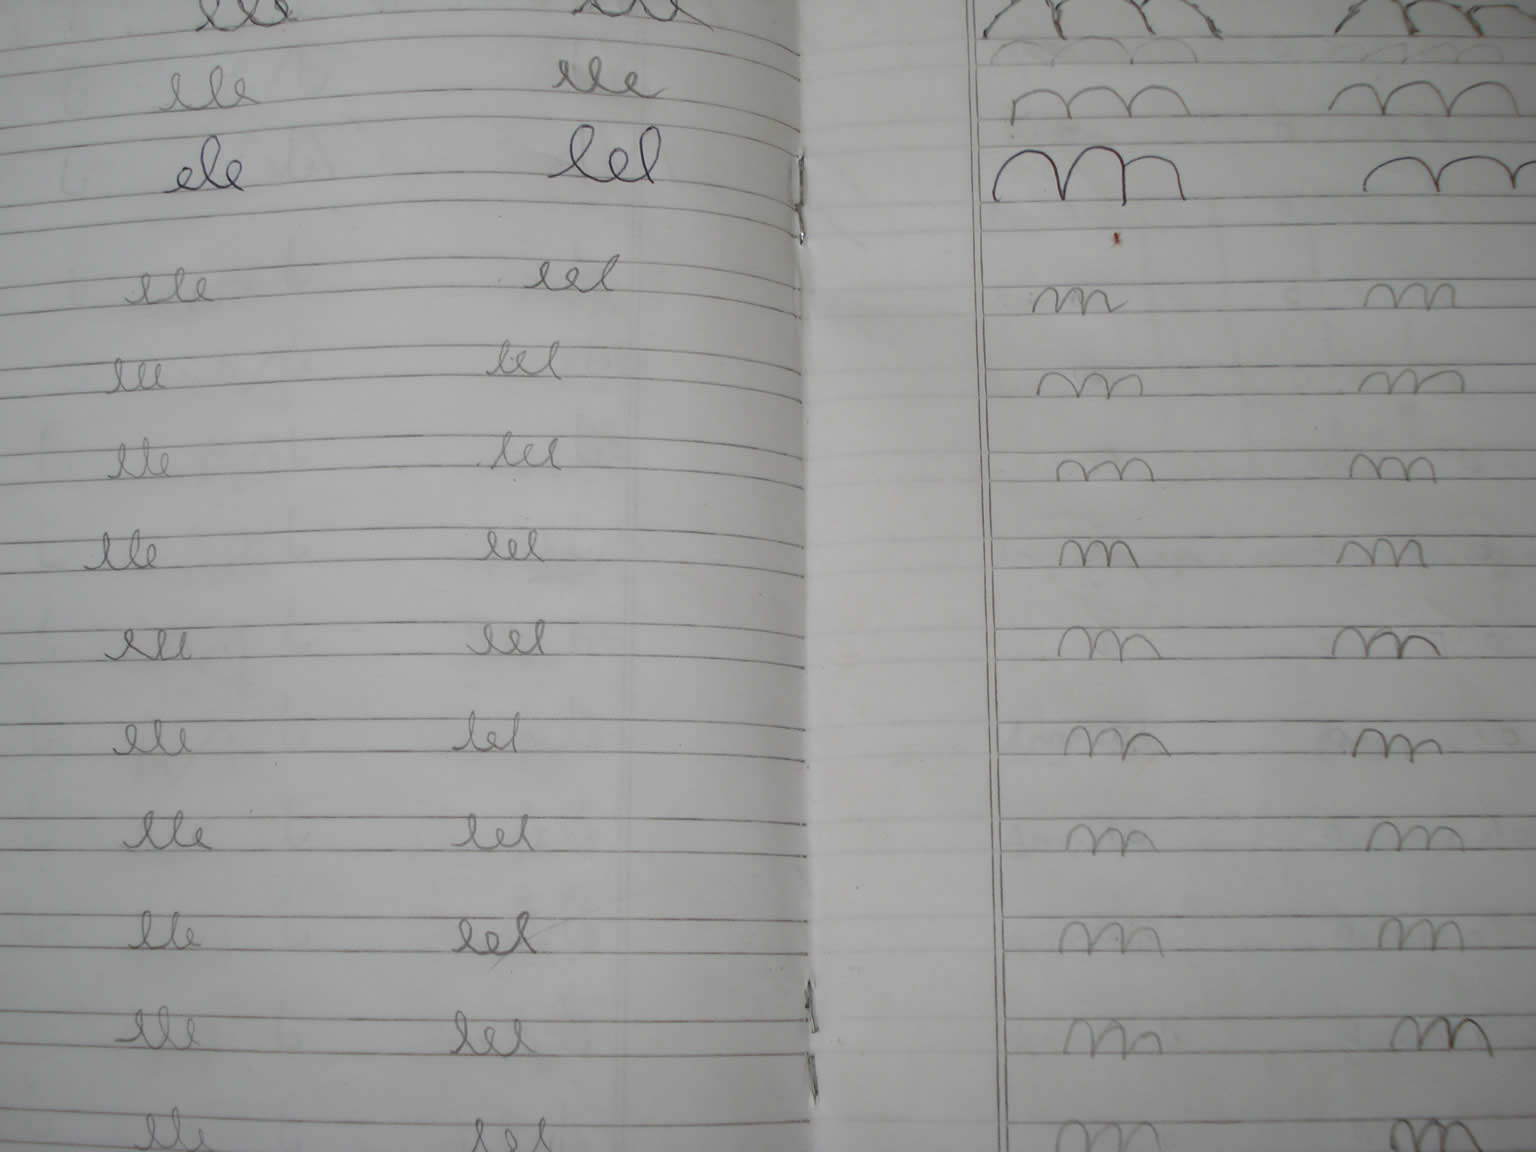 ele ele
ele lel
ele lel
ele lel
ele lel
ele lel
ele lel
ele lel
ele lel
ele lel
ele lel
ele lel
m m
m m
m m
m m
m m
m m
m m
m m
m m
m m
m m
m m
m m